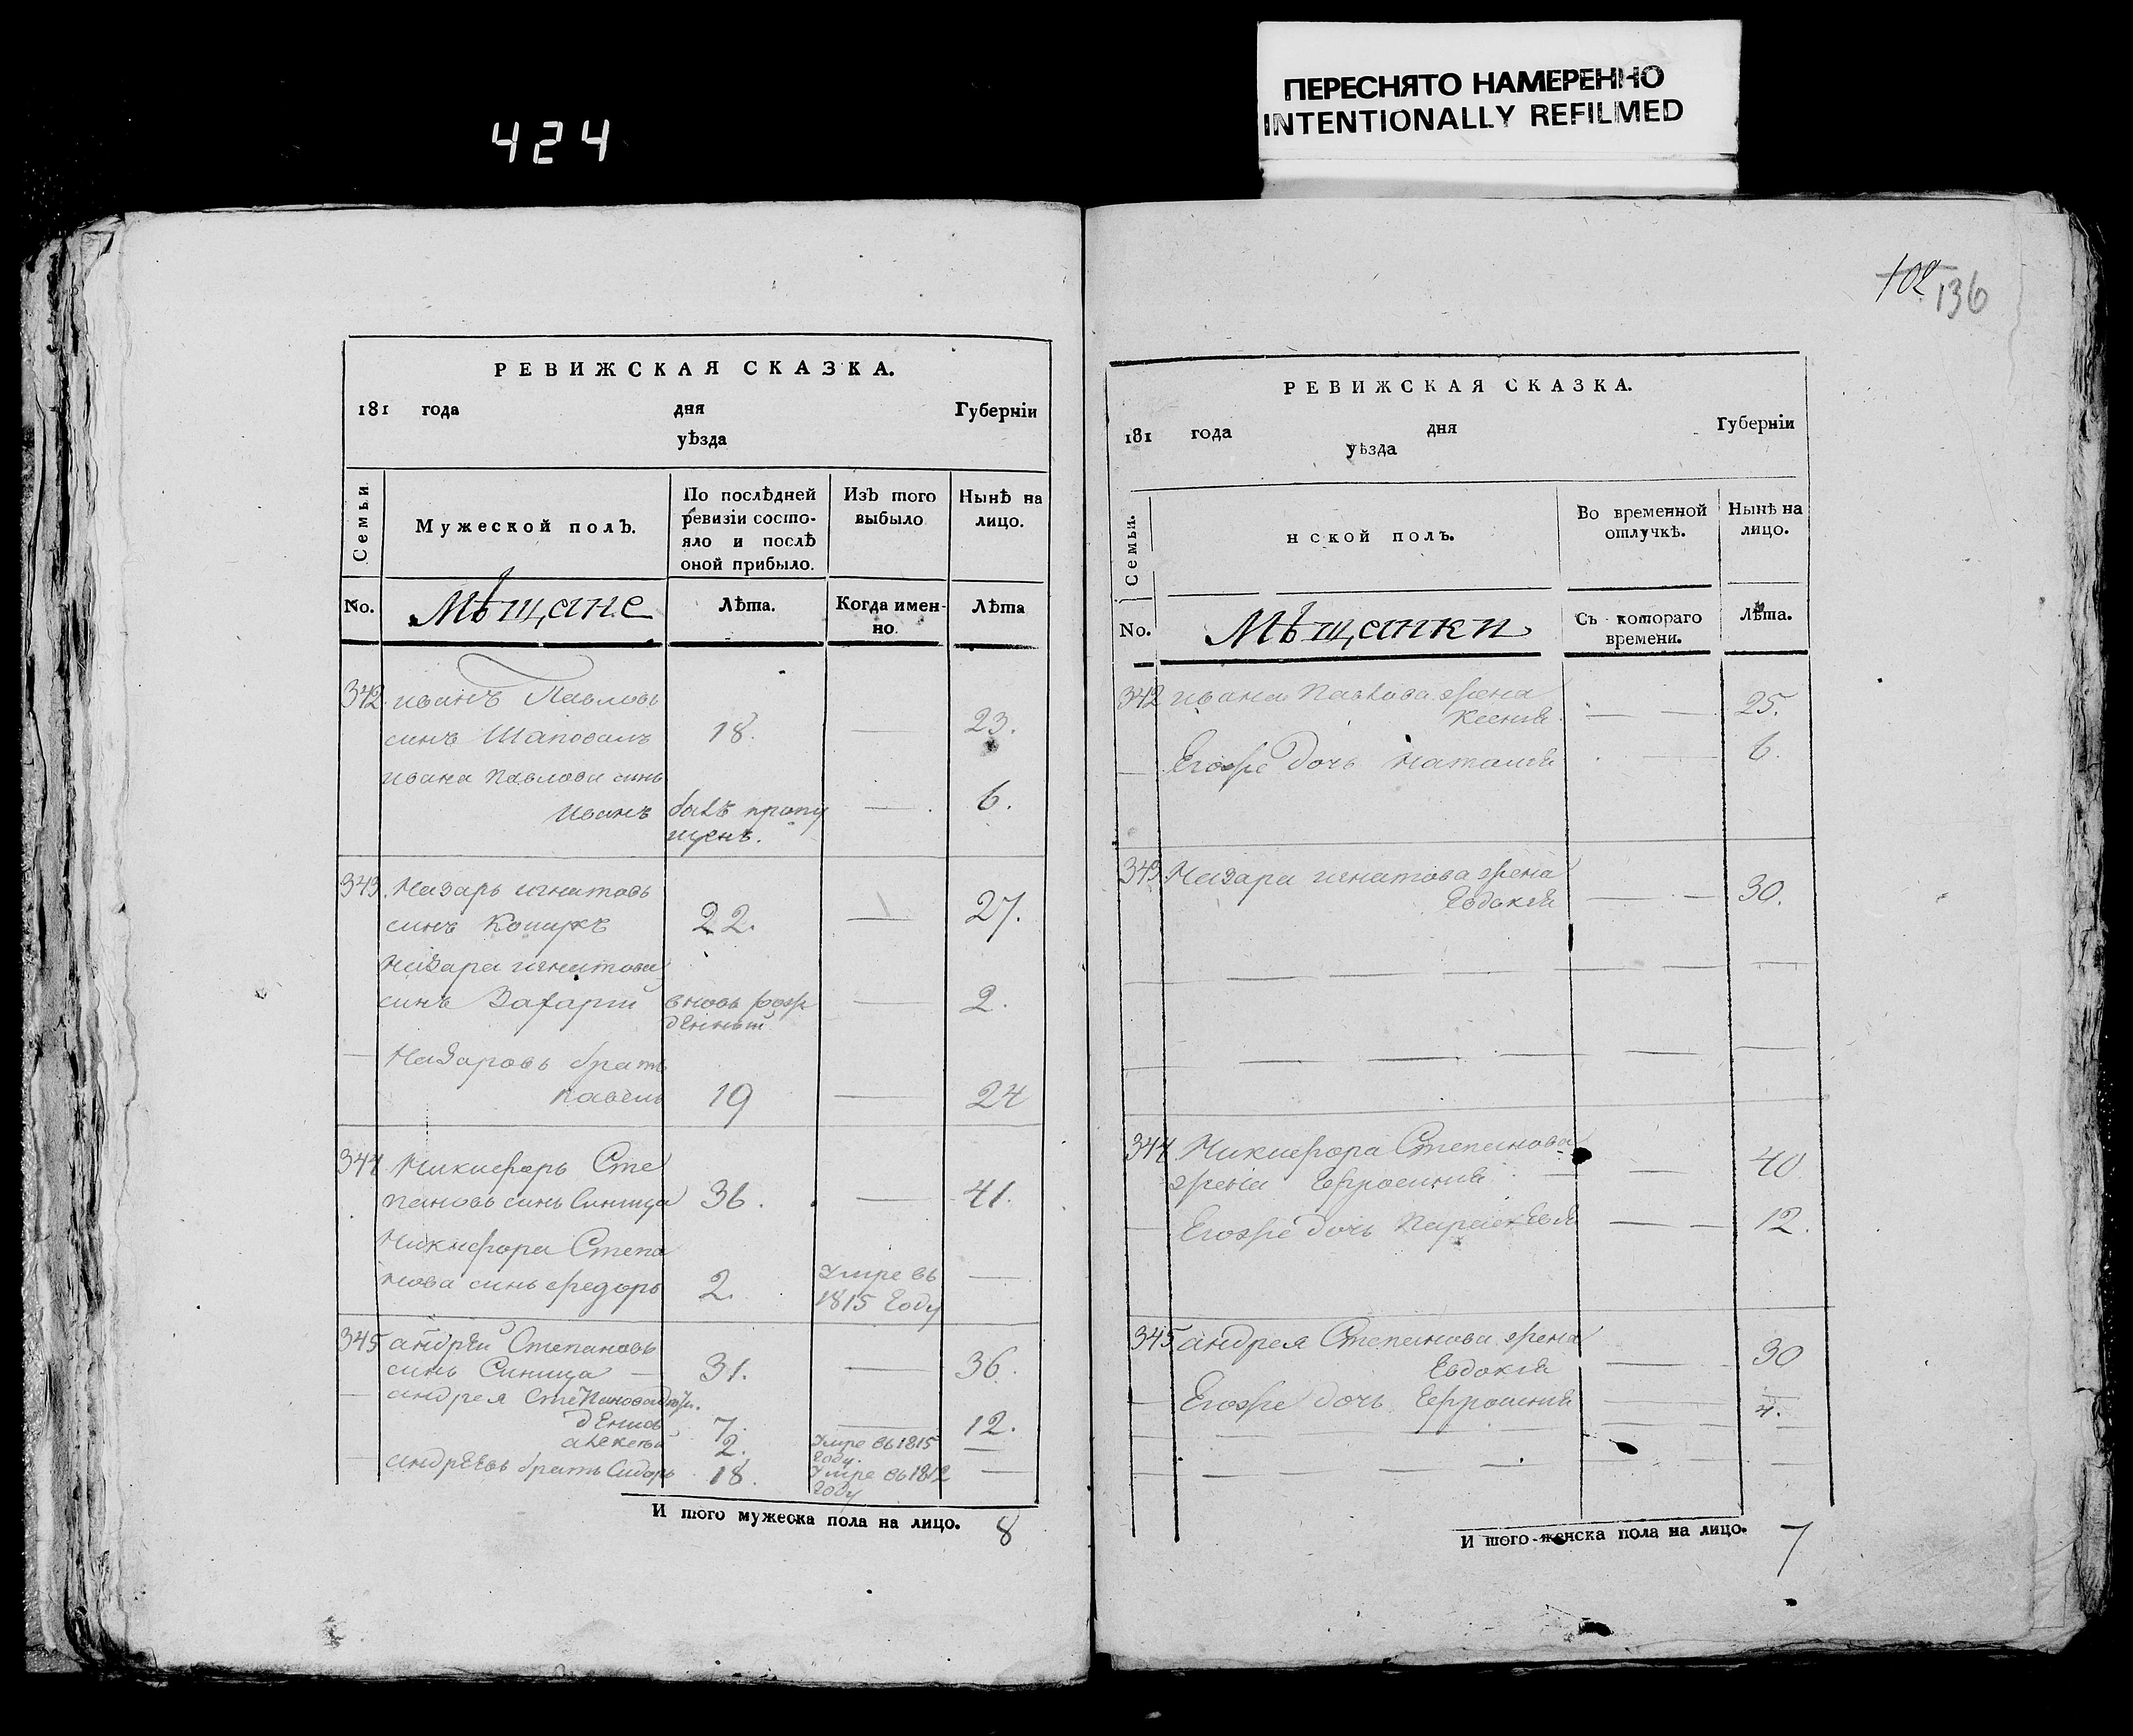 424
ПЕРЕСНЯТО НАМЕРЕННО
INTENTIONALLY REFILMED
РЕВИЖСКАЯ СКАЗКА.
181 года дня Губерніи
уѣзда
Семьи
Мужеской полъ.
По послѣдней ревизіи состо-
яло и послѣ
оной прибыло.
Изъ того выбыло
Нынѣ на лицо.
No.
Мѣщане
Лѣта.
Когда имен-
но.
Лѣта
342 иванъ Павловъ
синъ Шаповалъ 18. — 23.
ивана Павлова синъ
Иванъ билъ пропу
щенъ. — 6.
343. Назаръ игнатовъ
синъ Кошукъ 22. — 27.
Назара игнатова
синъ Захарій вновь рож
денный — 2.
— Назаровъ братъ
павелъ 19 — 24
344 Никифоръ Сте
пановъ синъ Синица 36. — 41.
Никифора Степа
нова синъ федоръ 2. Умре въ
1815 году —
345 андрей Степановъ
синъ Синица — 31. — 36.
— андрея Степанова
денисъ 7. — 12.
алексей 2. Умре въ 1815
году. —
— андреевъ братъ Сидоръ 18. Умре въ 1812
году —
И того мужеска пола на лицо. 8
102 136
РЕВИЖСКАЯ СКАЗКА.
181 года дня Губерніи
уѣзда
Семьи.
нской полъ.
Во временной
отлучкѣ.
Нынѣ на
лицо.
No.
Мѣщанки
Съ котораго
времени.
Лѣта.
342 ивана Павлова жена
Ксенія — — 25.
— Егожъ дочь Наталія — 6.
343. Назара игнатова жена
Евдокія — — 30.
344 Никифора Степанова
жена Ефросинія — 40
— Егожъ дочь Параскевія — — 12.
345 андрея Степанова жена
Евдокія — 30
— Егожъ дочь Ефросинія — 4.
И того женска пола на лицо. 7